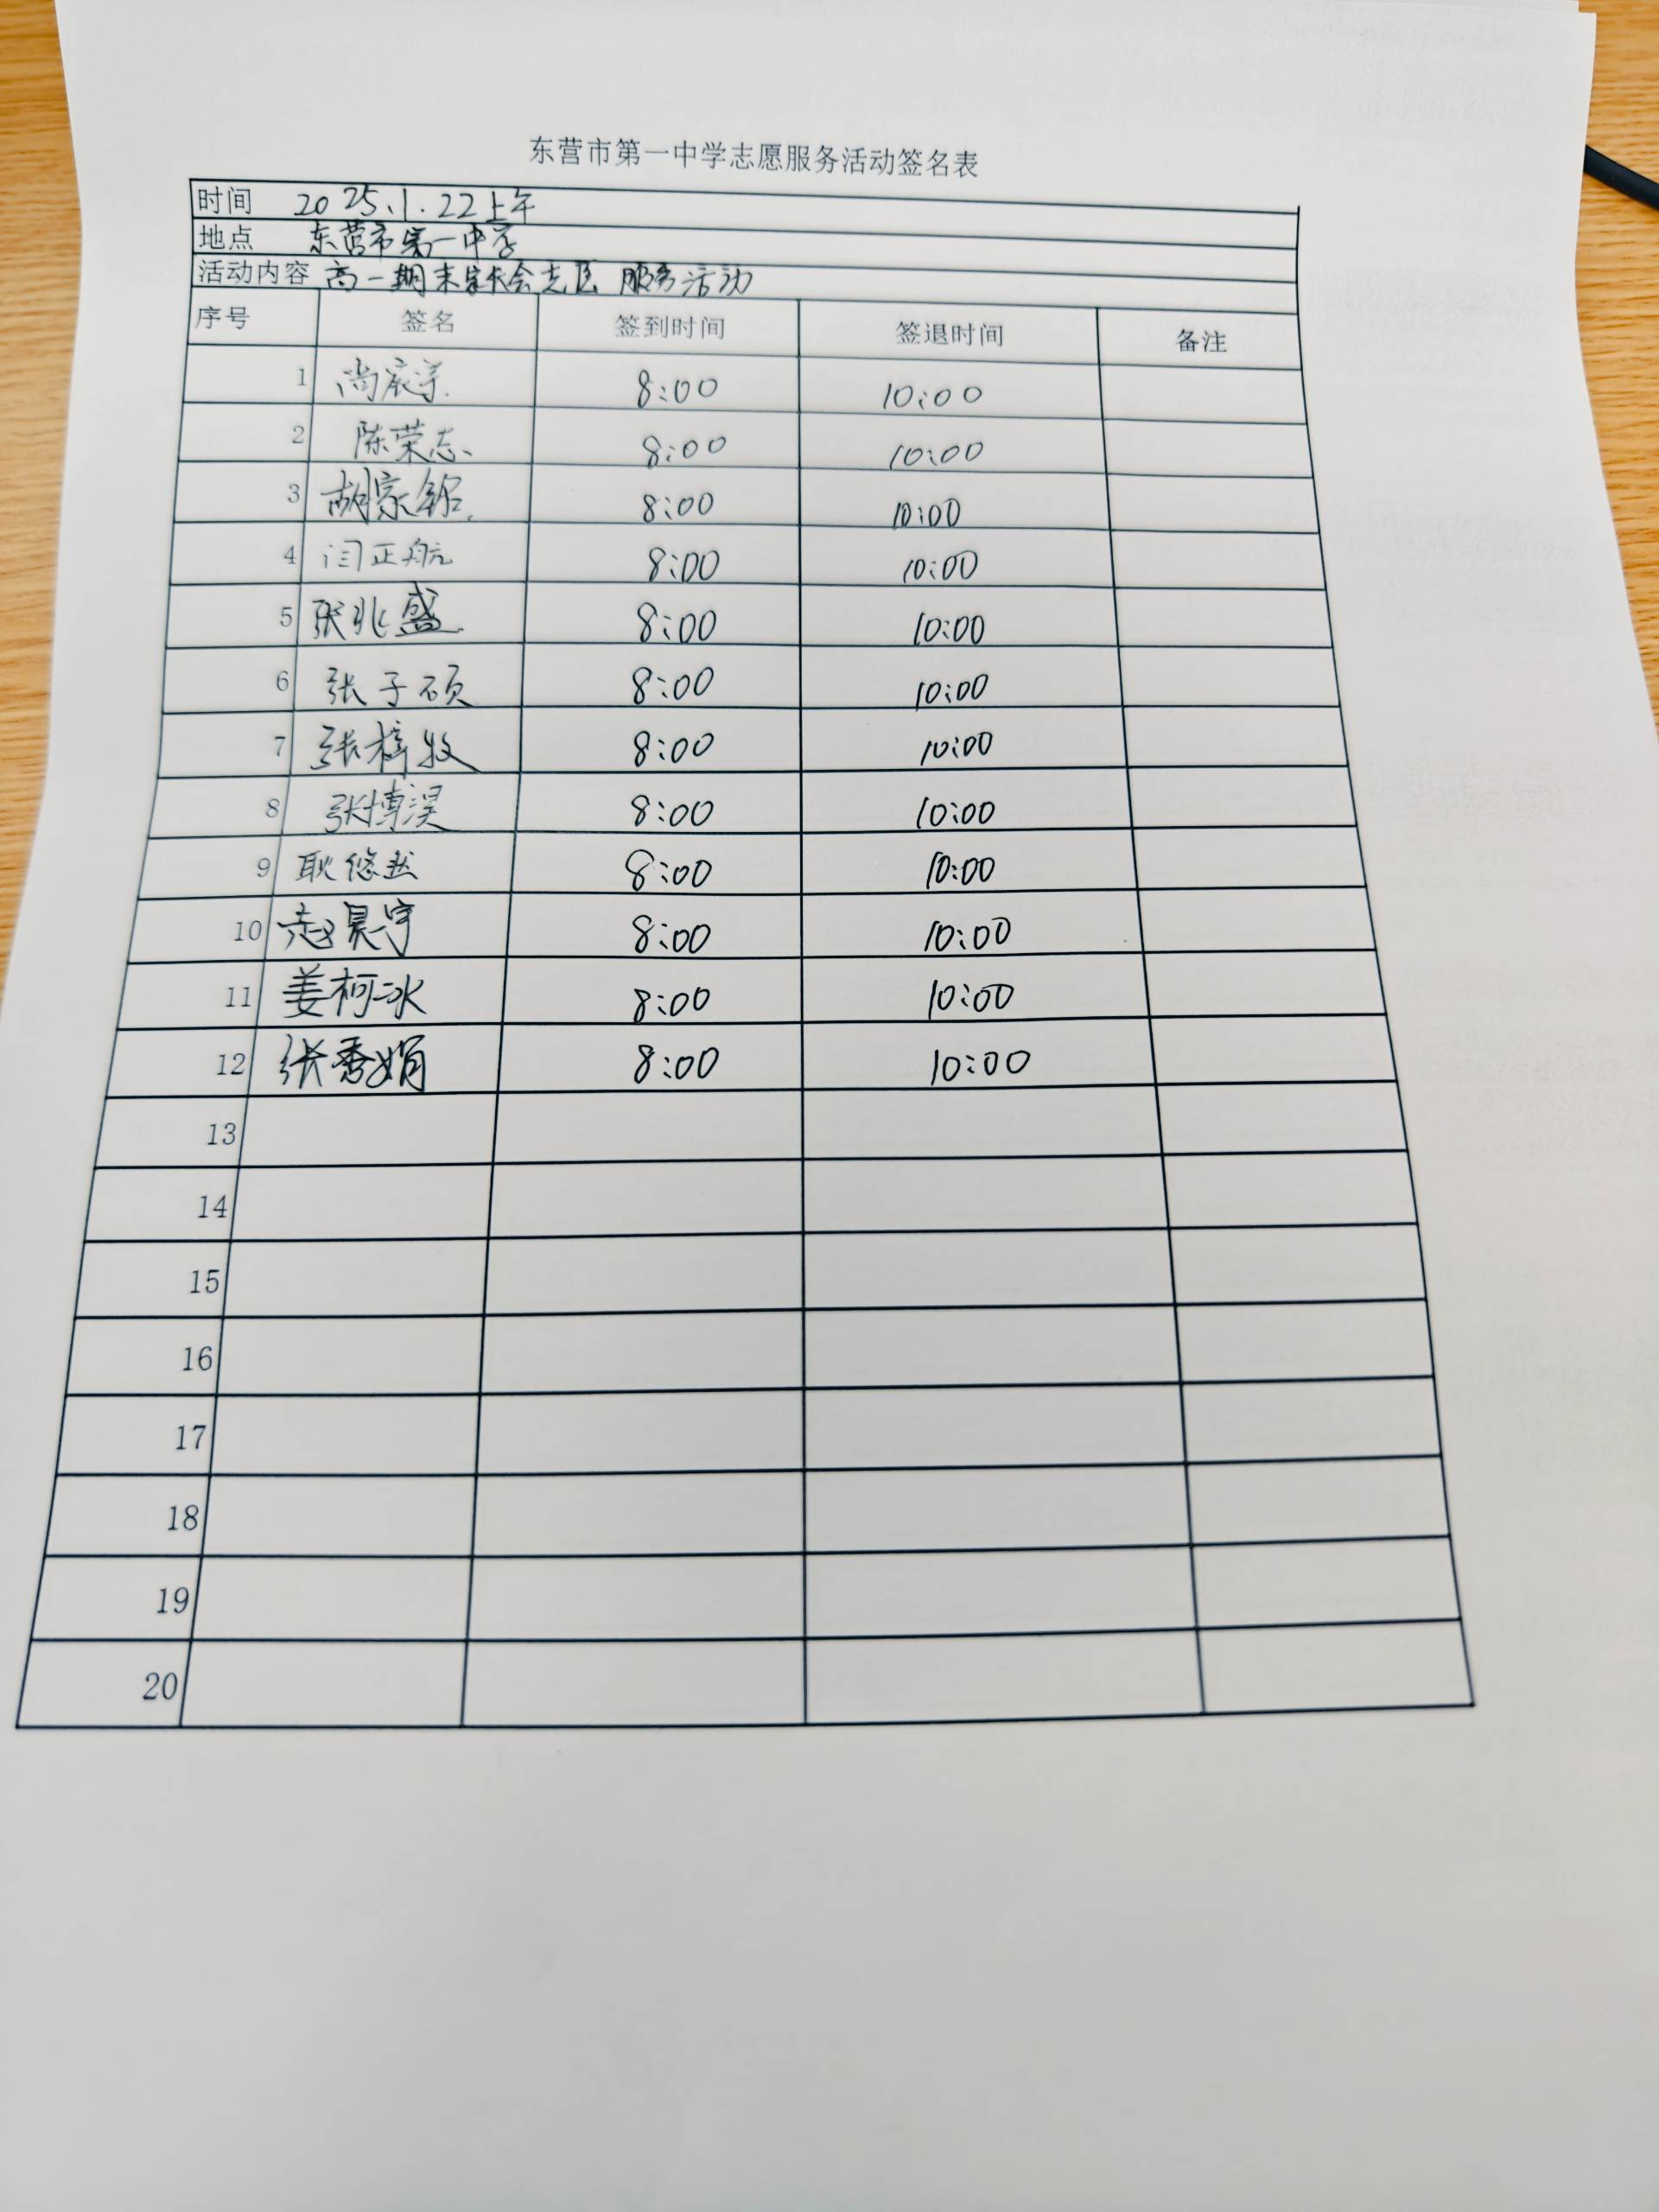 东营市第一中学志愿服务活动签名表
时间 2025.1.22上午
地点 东营市第一中学
活动内容 高一期末家长会志愿服务活动
序号 签名 签到时间 签退时间 备注
1 尚宸宇 8:00 10:00
2 陈荣志 8:00 10:00
3 胡家铭 8:00 10:00
4 闫正航 8:00 10:00
5 张兆盛 8:00 10:00
6 张子硕 8:00 10:00
7 张梓牧 8:00 10:00
8 张博淏 8:00 10:00
9 耿悠然 8:00 10:00
10 赵昊宇 8:00 10:00
11 姜柯冰 8:00 10:00
12 张秀娟 8:00 10:00
13
14
15
16
17
18
19
20